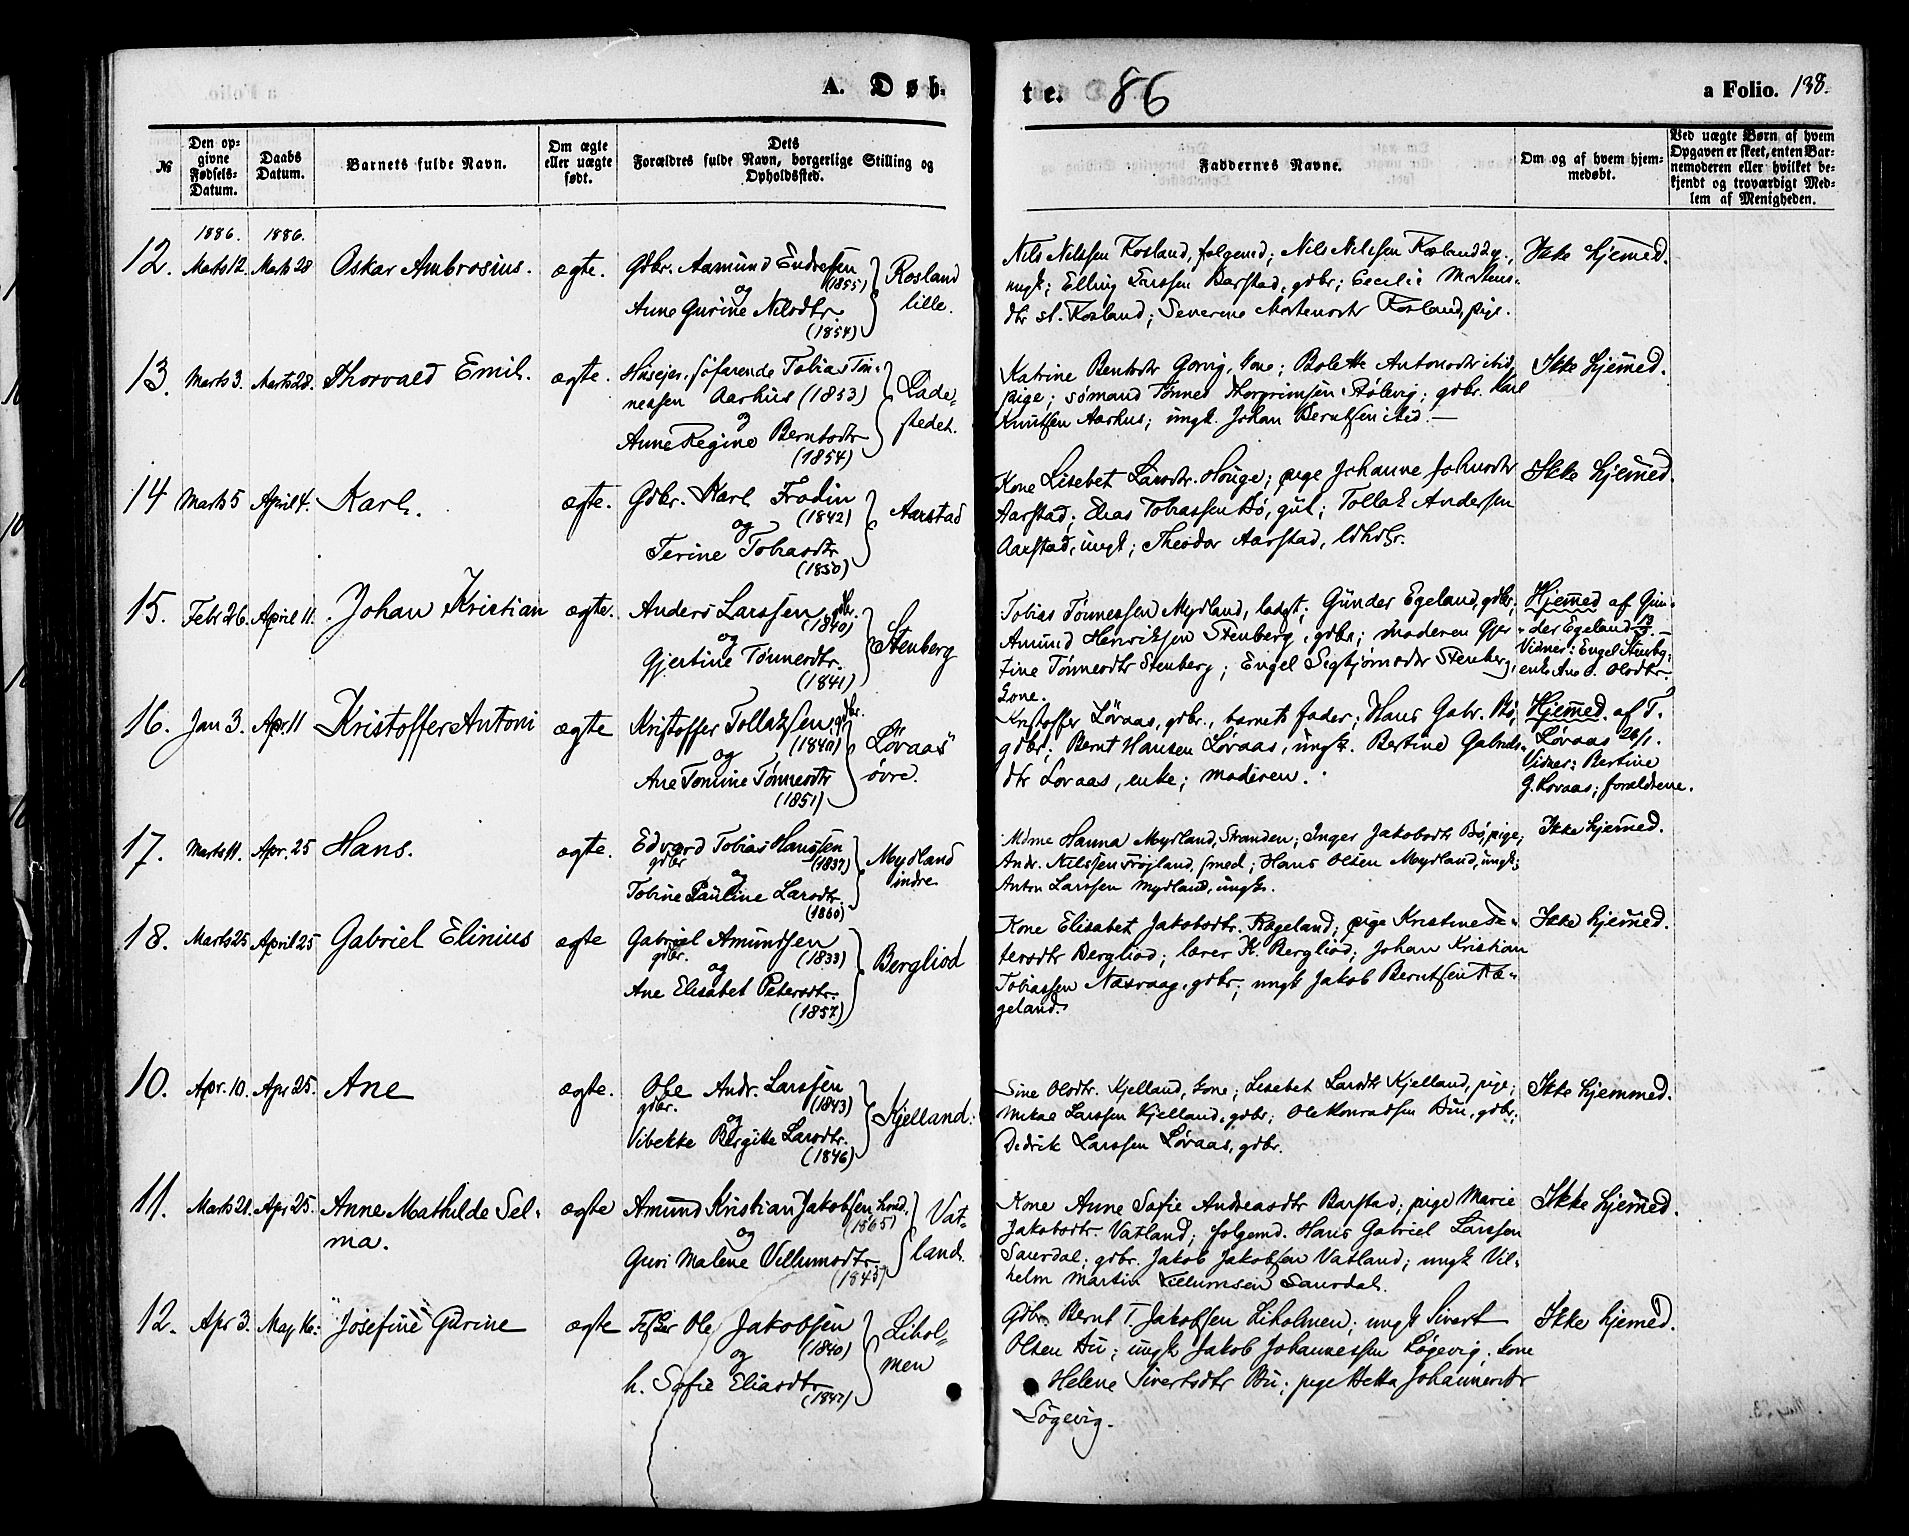 A. Døb-
te.
86
a Folio. 138.
№
Den op-
givne
Fødsels-
Datum.
Daabs
Datum.
Barnets fulde Navn.
Om ægte
eller uægte
født.
Dets
Forældres fulde Navn, borgerlige Stilling og
Opholdssted.
Faddernes Navne.
Om og af hvem hjem-
medøbt.
Ved uægte Børn af hvem
Opgaven er skeet, enten Bar-
nemoderen eller hvilket be-
kjendt og troværdigt Med-
lem af Menigheden.
1886. 1886.
12. Marts 12 Marts 28 Oskar Ambrosius. ægte.
Gdbr. Aamund Endresen
(1855)
og
Anne Gurine Nilsdtr.
(1854)
Rosland
lille.
Nils Nilssen Rosland, følgemd; Nils Nilssen Rosland
ungk; Elling Larssen Barstad, gdbr; Cecilie Mortens-
dtr st. Rosland; Severine Mortensdtr Rosland, pige.
Ikke hjemed.
13. Marts 3. Marts 28. Thorvald Emil. ægte.
Huseier, søfarende Tobias Tøn-
nessen Aarhus (1853)
og
Anne Regine Berntsdtr
(1854)
Lade-
stedet.
Katrine Berntsdtr Gorvig, kone; Bolette Antonsdtr ibid,
pige; sømand Tønnes Torgrimsen Stølevig; gdbr. Karl
Knutsen Aarhus; ungk. Johan Berntsen ibid. —
Ikke hjemed.
14 Marts 5 April 4. Karl. ægte.
Gdbr. Karl Frodin
(1842)
og
Terine Tobiasdtr
(1850)
Aarstad
Kone Lisebet Larsdtr. Houge; pige Johanne Johnsdtr
Aarstad; Elias Tobiassen Bø, gut; Tollak Andersen
Aarstad, ungk; Theodor Aarstad,
Ikke hjemed.
15. Febr 26. April 11. Johan Kristian ægte.
Anders Larssen gdbr.
(1840)
og
Gjertine Tønnesdtr.
(1841)
Stenberg
Tobias Tønnessen Mydland, ladgt; Gunder Egeland, gdbr,
Amund Henriksen Stenberg, gdbr; moderen Gjer
tine Tønnesdtr Stenberg; Engel Sigbjørnsdtr Stenberg,
kone.
Hjemed af Gun-
der Egeland
Vidner: Engel Stenbg;
enke Ane O. Olsdtr
16. Jan 3. Apr. 11 Kristoffer Antoni ægte
Kristoffer Tollakssen, gdbr.
(1840)
og
Ane Tomine Tønnesdtr
(1851)
Løvaas
øvre.
Kristoffer Løvaas, gdbr., barnets fader; Hans Gabr. Bø,
gdbr; Bernt Hansen Løvaas, ungk. Bertine Gabriels-
dtr Lovaas, enke; moderen.
Hjemed. af T.
Løvaas 26/1.
Vidner: Bertine
G. Lovaas; forældrene.
17. Marts 11. Apr. 25 Hans. ægte.
Edvard Tobias Hanssen
gdbr (1837)
og
Tobine Pauline Larsdtr.
(1860)
Mydland
indre
Mdme Hanna Mydland, Stranden; Inger Jakobsdtr Bø, pige;
Andr. Nilssen Frøyland, smed; Hans Olsen Mydland, ungk;
Anton Larssen Mydland, ungk.
Ikke hjemed.
18. Marts 25 April 25 Gabriel Elinius ægte
Gabriel Amundsen
gdbr. (1833)
og
Ane Elisabet Petersdtr.
(1857)
Bergliod
Kone Elisabet Jakobsdtr. Rægeland; pige Kristine Pe-
tersdtr Bergliod; lærer K. Bergliod; Johan Kristian
Tobiassen Næsvaag, gdbr; ungk Jakob Berntsen Ræ-
geland.
Ikke hjemed.
10. Apr. 10. Apr 25. Ane ægte.
Ole Andr. Larssen
gdbr. (1843)
og
Vibekke Birgitte Larsdtr.
(1846)
Kjelland.
Sine Olsdtr. Kjelland, kone; Lisebet Larsdtr Kjelland, pige;
Mikal Larssen Kjelland, gdbr; Ole Konradsen Bu, gdbr;
Didrik Larssen Løvaas, gdbr.
Ikke hjemmed.
11. Marts 21. Apr 25. Anne Mathilde Sel-
ma.
ægte
Amund Kristian Jakobsen,
(1865)
og
Guri Malene Villumsdtr
(1843)
Vat-
land.
Kone Anne Sofie Andreasdtr Barstad; pige Marie
Jakobsdtr. Vatland; følgemd. Hans Gabriel Larssen
Saurdal; gdbr. Jakob Jakobsen Vatland; ungk Vil-
helm Martin Villumsen Saurdal.
Ikke hjemed.
12. Apr 3. Maj 16. Josefine Gurine ægte
Fisker Ole Jakobsen
(1840)
og
h. Sofie Eliasdtr
(1847)
Lihol-
men
Gdbr. Bernt T. Jakobsen Liholmen; ungk Sivert
Olsen Bu; ungk Jakob Johannessen Løgevig; kone
Helene Sivertsdtr Bu; pige Hetta Johannesdtr
Løgevig.
Ikke hjemed.